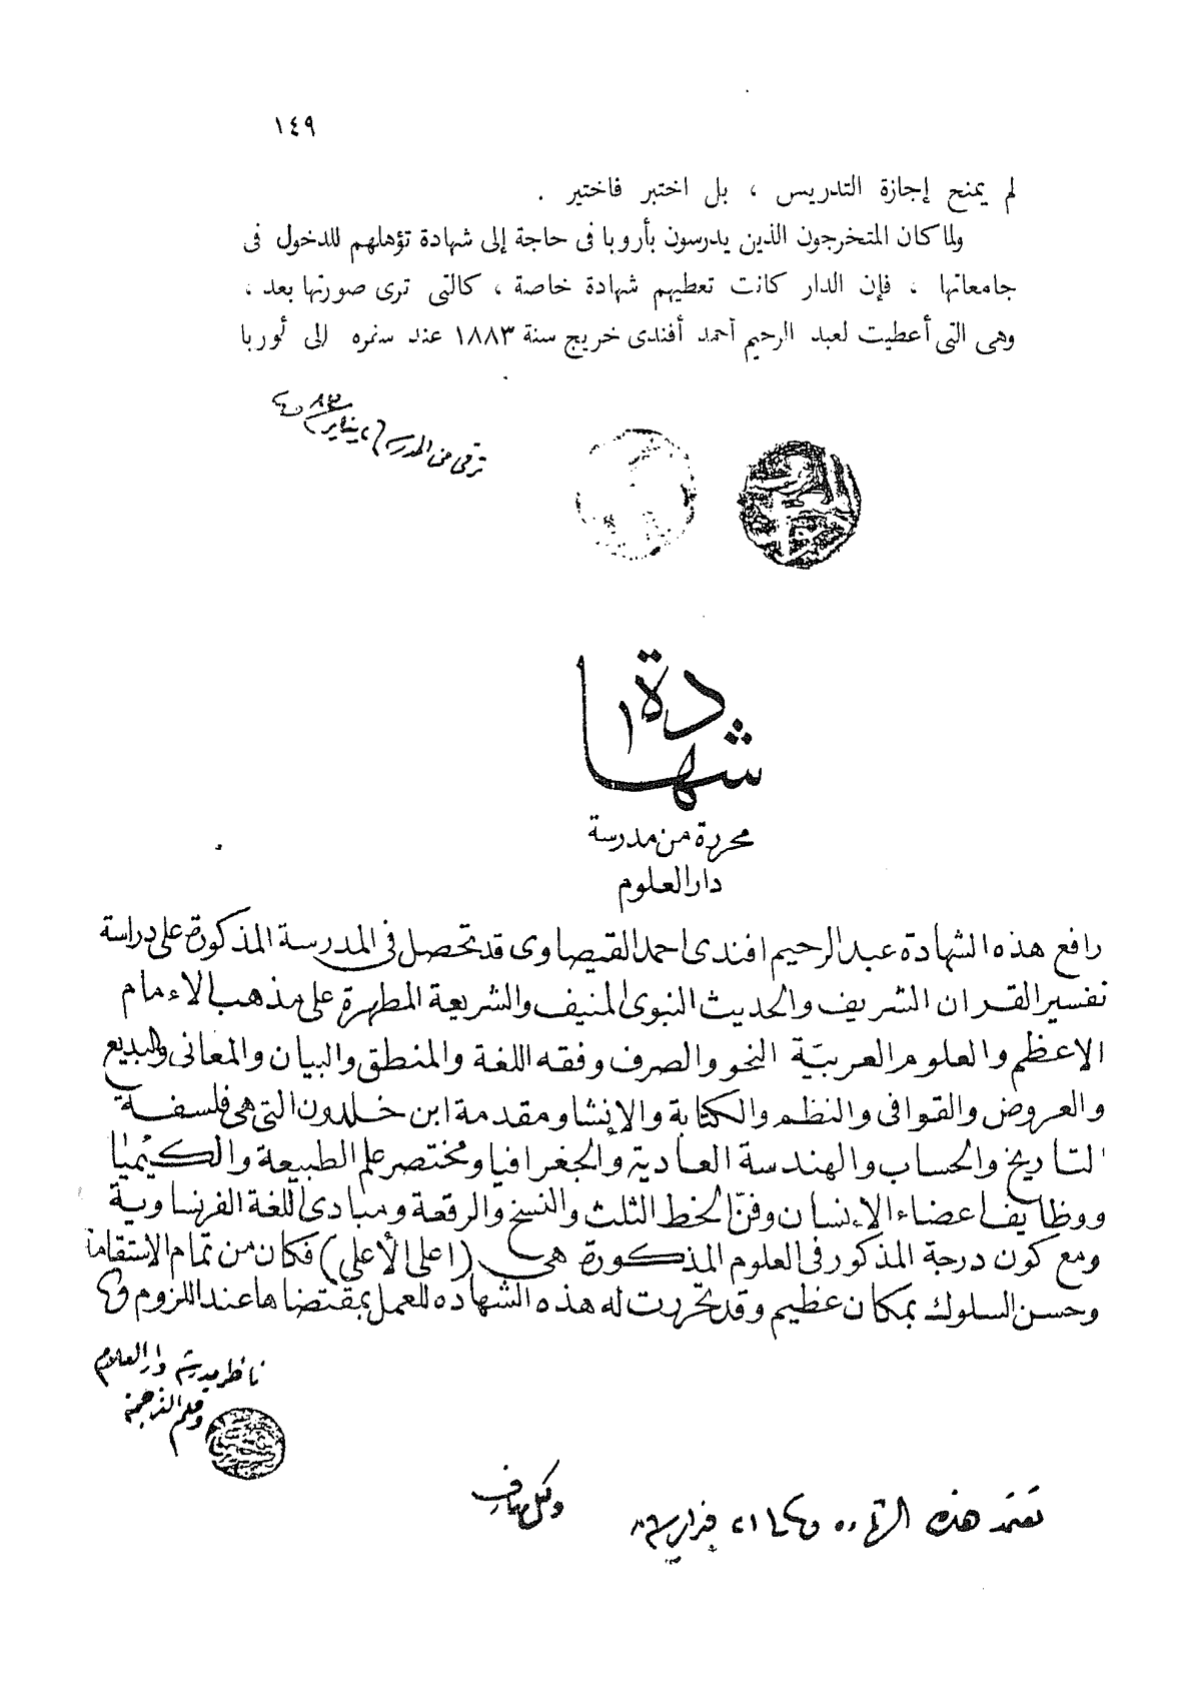 ١٤٩
لم يمنح إجازة التدريس ، بل اختبر فاختير .
ولما كان المتخرجون الذين يدرسون بأروبا فى حاجة إلى شهادة تؤهلهم للدخول فى
جامعاتها ، فإن الدار كانت تعطيهم شهادة خاصة ، كالتى ترى صورتها بعد ،
وهى التى أعطيت لعبد الرحيم أحمد أفندى خريج سنة ١٨٨٣ عند سفره إلى أوربا
من المدرسة يناير ٨٣
شهادة
محررة من مدرسة
دار العلوم
رافع هذه الشهادة عبد الرحيم افندى احمد القيصاوى قد تحصل فى المدرسة المذكورة على دراسة
تفسير القران الشريف والحديث النبوى المنيف والشريعة المطهرة على مذهب الامام
الاعظم والعلوم العربية النحو والصرف وفقه اللغة والمنطق والبيان والمعانى والبديع
والعروض والقوافى والنظم والكتابة والإنشا ومقدمة ابن خلدون التى هى فلسفة
التاريخ والحساب والهندسة العادية والجغرافيا ومختصر علم الطبيعة والكيميا
ووظايف اعضاء الإنسان وفن الخط الثلث والنسخ والرقعة ومبادى اللغة الفرنساوية
ومع كون درجة المذكور فى العلوم المذكورة هى (اعلى الأعلى) فكان من تمام الاستقامة
وحسن السلوك بمكان عظيم وقد تحررت له هذه الشهاده للعمل بمقتضاها عند اللزوم
ناظر مدرسة دار العلوم
وقلم الترجمة
وكيل معارف
تعتمد هذه الشهاده ٢١ فبراير